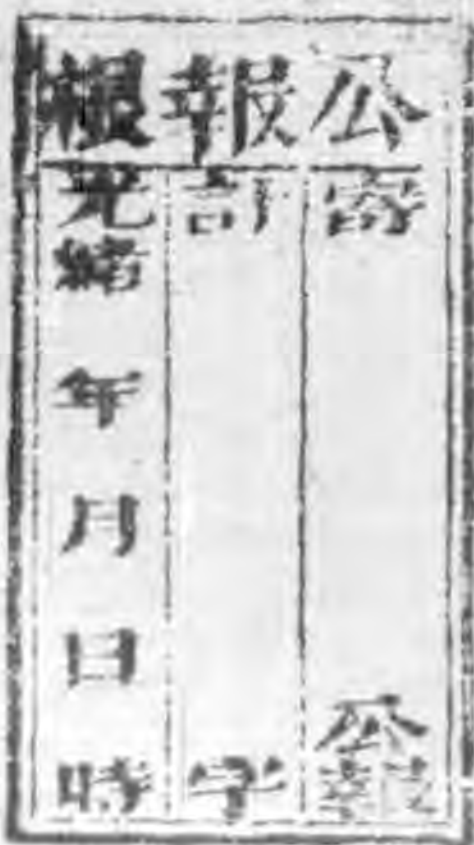 公報根
寄 公報
計 字
光緒 年 月 日 時